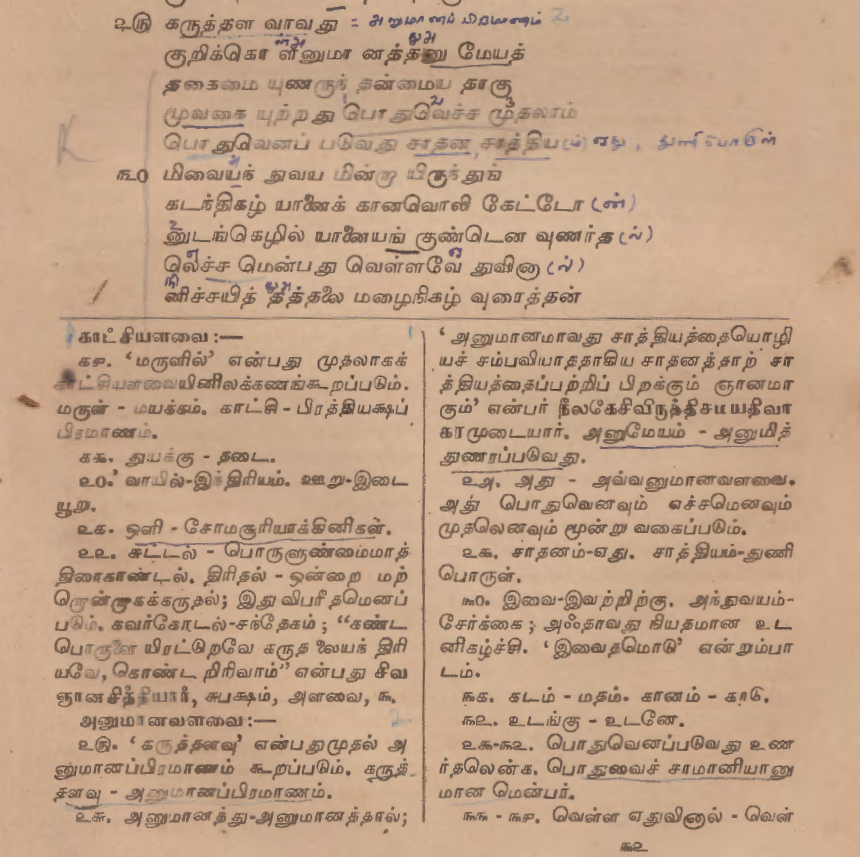 உரு கருத்தள வாவது = அனுமானப் பிரமாணம் 2
குறிக்கொ ளீனுமா னத்தனு மேயத்
தகைமை யுணருந் தன்மைய தாகு
மூவகை யுற்றது பொதுவெச்ச முதலாம்
பொதுவெனப் படுவது சாதன சாத்திய(ம்) ஏது, துணிபொருள்
௩௦ மிவையந் துவய மின்றா யிருந்துங்
கடந்திகழ் யானைக் கானவொலி கேட்டோ (ன்)
னுடங்கெழில் யானையங் குண்டென வுணர்த (ல்)
லெச்ச மென்பது வெள்ளவே துவினா (ல்)
னிச்சயித் தித்தலை மழைநிகழ் வுரைத்தன்
காட்சியளவை:—
௧௮. ‘மருளில்’ என்பது முதலாகக்
காட்சியளவையினிலக்கணங்கூறப்படும்.
மருள் - மயக்கம். காட்சி - பிரத்தியக்ஷப்
பிரமாணம்.
௧௯. துயக்கு - தடை.
௨௦. வாயில்-இந்திரியம். ஊறு-இடை
யூறு.
௨௧. ஒளி - சோமசூரியாக்கினிகள்.
௨௨. சுட்டல் - பொருளுண்மைமாத்
திரைகாண்டல். திரிதல் - ஒன்றை மற்
றொன்றாகக்கருதல்; இது விபரீதமெனப்
படும். கவர்கோடல்-சந்தேகம்; “கண்ட
பொருளை யிரட்டுறவே கருத லையந் திரி
யவே, கொண்ட றிரிவாம்” என்பது சிவ
ஞானசித்தியார், சுபக்ஷம், அளவை, ௩.
அனுமானவளவை:— 2
௨௫. ‘கருத்தளவு’ என்பதுமுதல் அ
னுமானப்பிரமாணம் கூறப்படும். கருத்
தளவு - அனுமானப்பிரமாணம்.
௨௬. அனுமானத்து-அனுமானத்தால்;
‘அனுமானமாவது சாத்தியத்தையொழி
யச் சம்பவியாததாகிய சாதனத்தாற் சா
த்தியத்தைப்பற்றிப் பிறக்கும் ஞானமா
கும்’ என்பர் நீலகேசிவிருத்திசமயதிவா
காரமுடையார். அனுமேயம் - அனுமித்
துணரப்படுவது.
௨௮. அது - அவ்வனுமானவளவை.
அது பொதுவெனவும் எச்சமெனவும்
முதலெனவும் மூன்று வகைப்படும்.
௨௯. சாதனம்-ஏது. சாத்தியம்-துணி
பொருள்.
௩௦. இவை-இவற்றிற்கு. அந்துவயம்-
சேர்க்கை; அஃதாவது நியதமான உட
னிகழ்ச்சி. ‘இவைதமொடு’ என்றும்பா
டம்.
௩௧. கடம் - மதம். கானம் - காடு.
௩௨. உடங்கு - உடனே.
௨௯-௩௨. பொதுவெனப்படுவது உண
ர்தலென்க. பொதுவைச் சாமானியானு
மான மென்பர்.
௩௩ - ௩௪. வெள்ள ஏதுவினால் - வெள்
௩௨